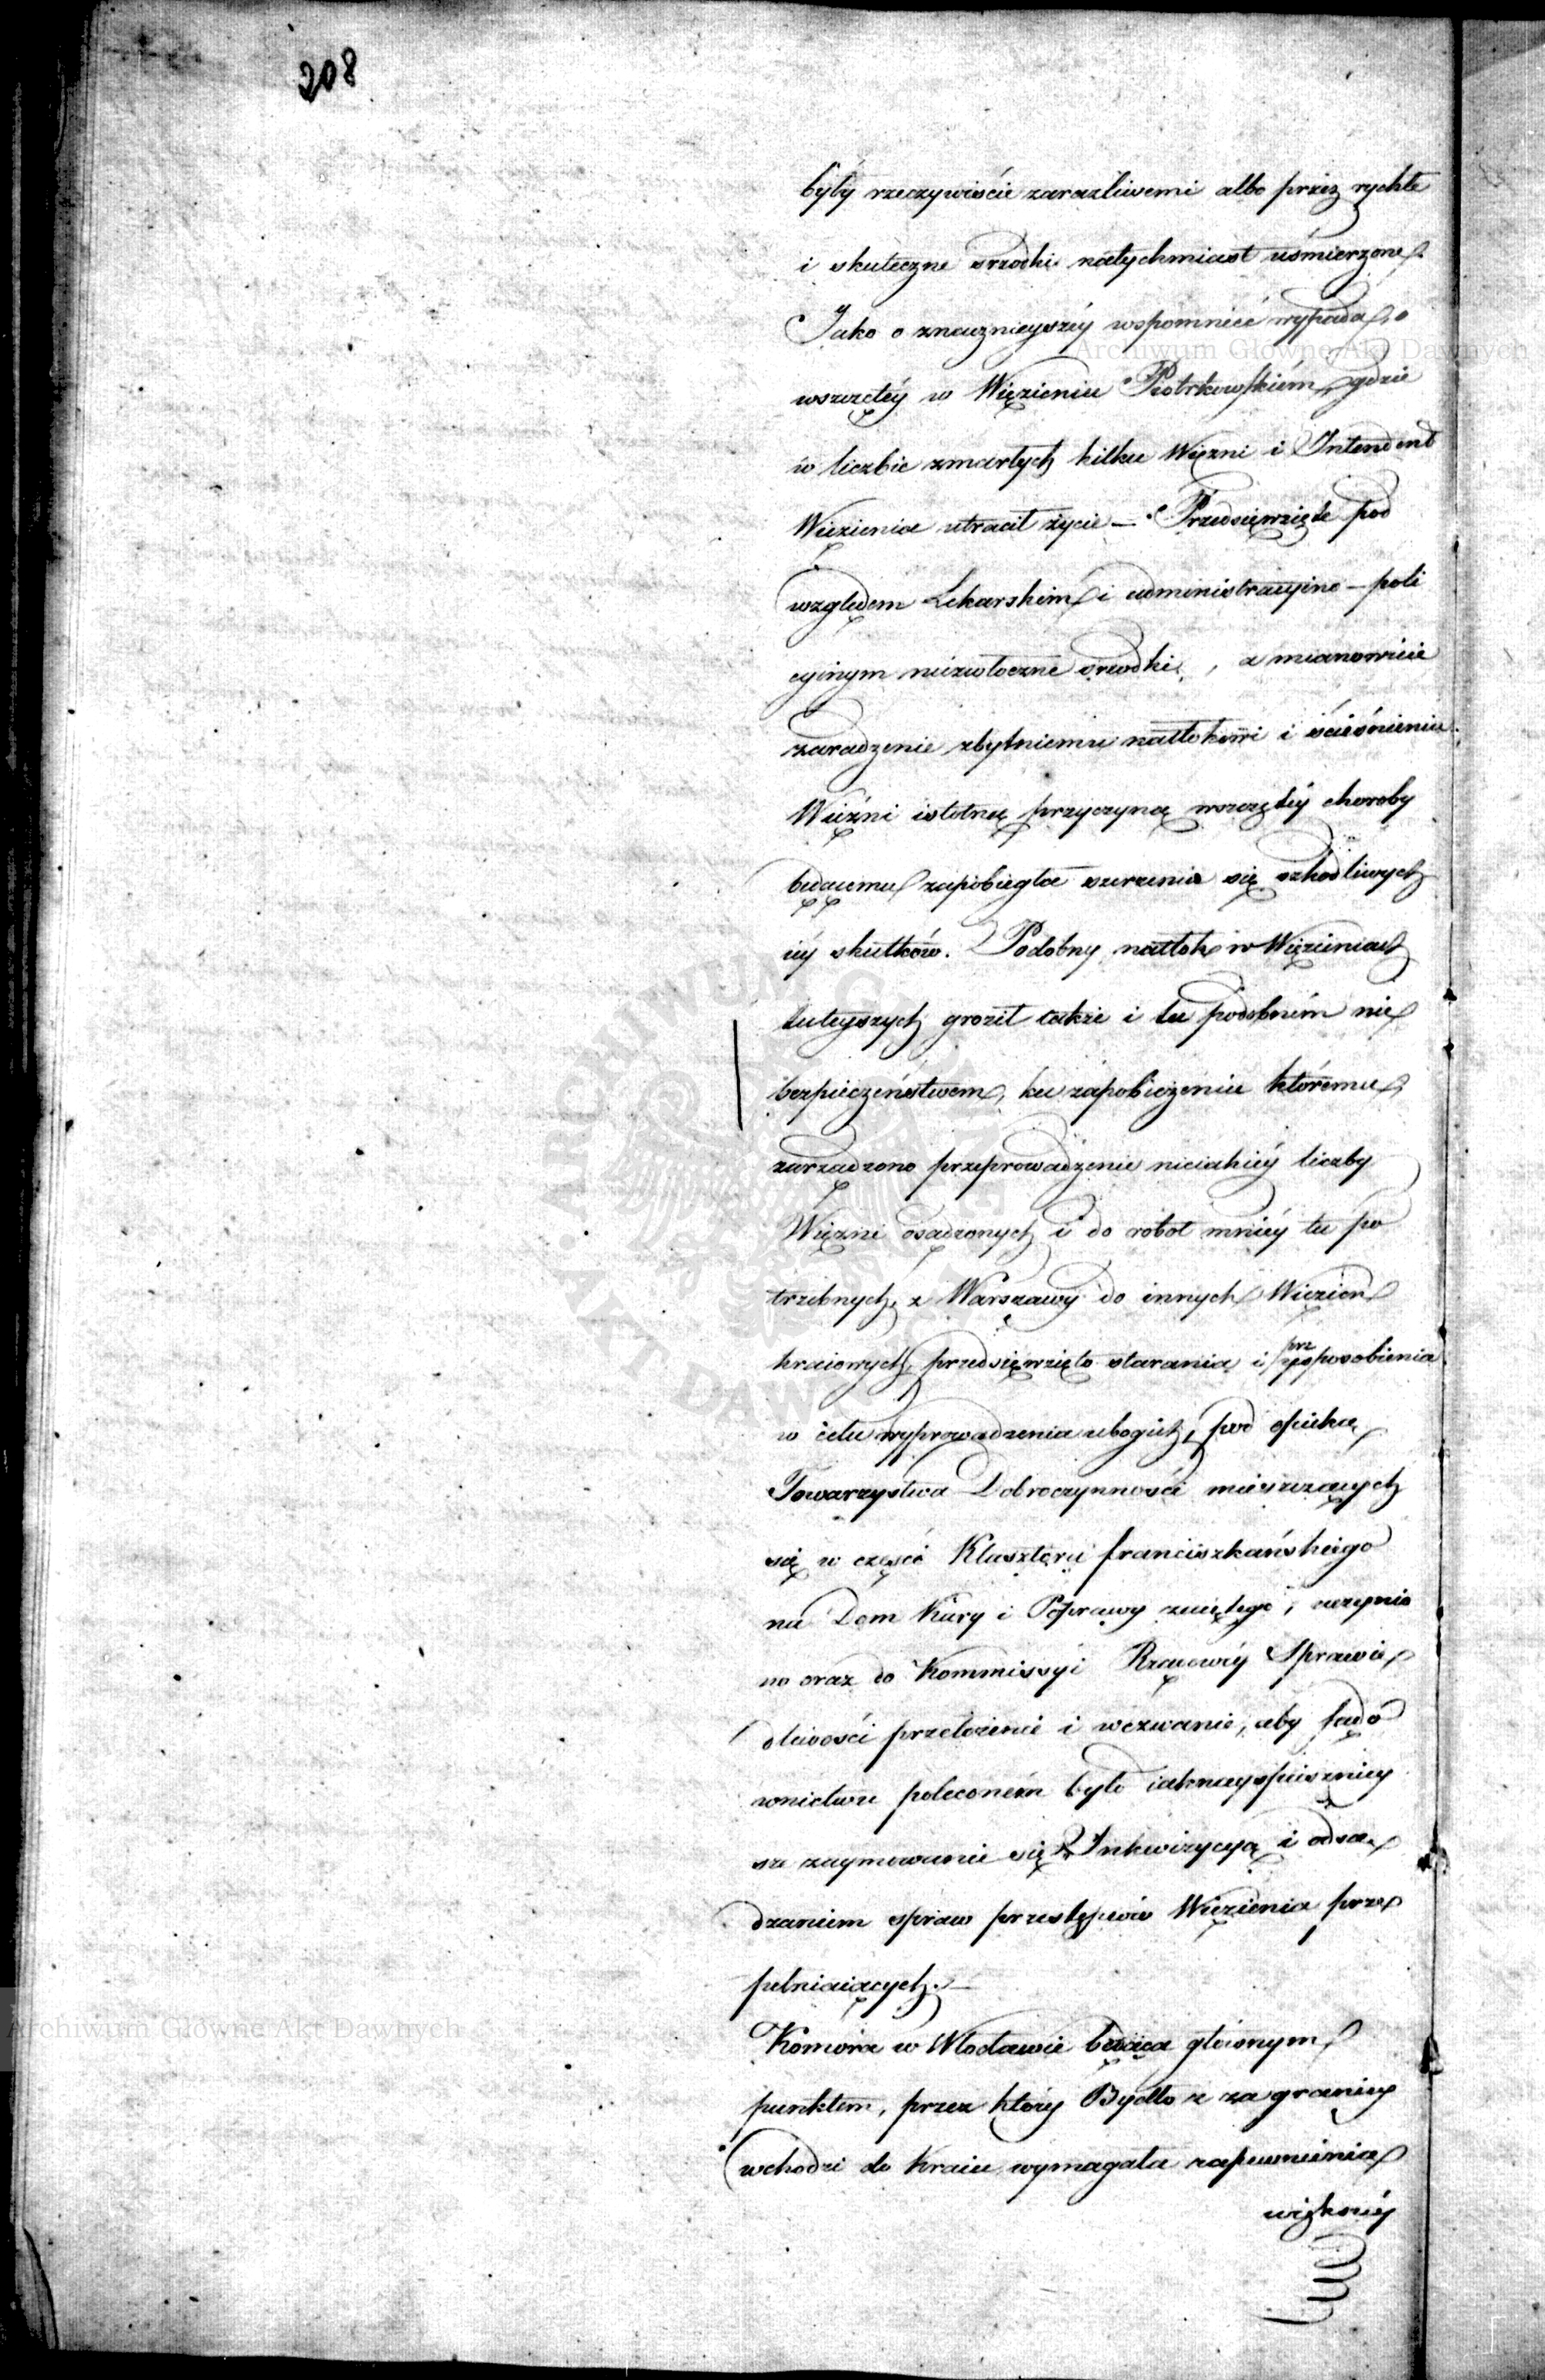 208
były rzeczywiście zaraźliwemi albo przez rychłe
i skuteczne srzodki natychmiast uśmierzone
Jako o znacznieyszéy wspomnieć wypada, o
wszczętéy w Więzieniu Piotrkowskiém, gdzie
w liczbie zmarłych kilku Więzni i Intendent
Więzienia utracił życie — Przedsięwzięte pod
względem Lekarskim i administracyino-poli
cyinym niezwłoczne srzodki, a mianowicie
zaradzenie zbytniemu natłokowi i ścieśnieniu
Więźni istotną przyczyną wszczętéy choroby
będącemu zapobiegła szerzenia się szkodliwych
iéy skutków. Podobny natłok w Więzieniach
tuteyszych groził także i tu podobném nie
bezpieczeństwem, ku zapobieżeniu któremu,
zarządzono przeprowadzenie nieiakiéy liczby
Więzni osądzonych i do robot mniéy tu po
trzebnych, z Warszawy do innych Więzień
kraiowych, przedsięwzięto starania i przysposobienia
w celu wyprowadzenia ubogich, pod opieką
Towarzystwa Dobroczynności mieszczących
się w części Klasztoru franciszkańskiego
na Dom Kary i Poprawy zaiętego, uczynio
no oraz do Kommissyi Rządowéy Sprawie
dliwości przełożenie i wezwanie, aby sądo
wnictwu poleconém było iaknayspieszniey
sze zaymowanie się Inkwizycyą i odsą
dzaniem spraw przestępców Więzienia prze
pełniaiących. —
Komora w Włodawie będąca głównym
punktem, przez który Bydło z za granicy
wchodzi do Kraiu wymagała zapewnienia
większéy
Archiwum Główne Akt Dawnych
Archiwum Główne Akt Dawnych
ARCHIWUM GŁÓWNE
AKT DAWNYCH